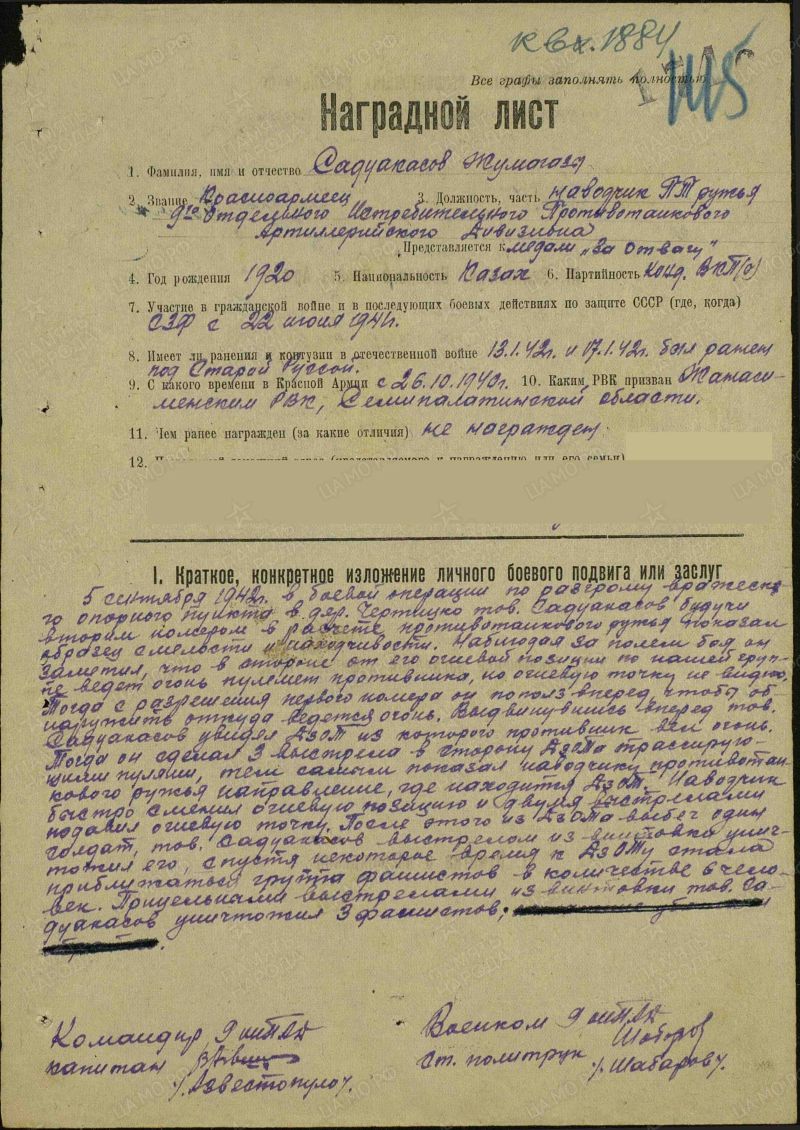 к вх. 1884
1415
Все графы заполнять полностью
Наградной лист
1. Фамилия, имя и отчество Садуакасов Жумагазы
2. Звание Красноармеец 3. Должность, часть наводчик ПТ ружья
9го Отдельного Истребительного Противотанкового
Артиллерийского Дивизиона
Представляется к медали „За Отвагу"
4. Год рождения 1920 5. Национальность Казах 6. Партийность Канд. ВКП(б)
7. Участие в гражданской войне и в последующих боевых действиях по защите СССР (где, когда)
СЗФ с 22 июня 1941г.
8. Имеет ли ранения и контузии в отечественной войне 13.1.42г. и 17.1.42г. был ранен
под Старой Руссой.
9. С какого времени в Красной Армии с 26.10.1940г. 10. Каким РВК призван Жанаси-
менским РВК, Семипалатинской области.
11. Чем ранее награжден (за какие отличия) не награжден
12.
I. Краткое, конкретное изложение личного боевого подвига или заслуг
5 сентября 1942г. в боевой операции по разгрому вражеско-
го опорного пункта в дер. Чертицко тов. Садуакасов будучи
вторым номером в расчете противотанкового ружья показал
образец смелости и находчивости. Наблюдая за полем боя он
заметил, что в стороне от его огневой позиции по нашей груп-
пе ведет огонь пулемет противника, но огневую точку не видно,
Тогда с разрешения первого номера он пополз вперед, чтоба об
наружить откуда ведется огонь. Выдвинувшись вперед тов.
Садуакасов увидел ДзОТ из которого противник вел огонь.
Тогда он сделал 3 выстрела в сторону ДзОТа трассирую-
щими пулями, тем самым показал наводчику противотан
кового ружья направление, где находится ДзОТ. Наводчик
быстро сменил огневую позицию и двумя выстрелами
подавил огневую точку. После этого из ДзОТа выбег один
солдат, тов. Садуакасов выстрелом из винтовки унич-
тожил его, спустя некоторое время к ДзОТу стала
приближаться группа фашистов в количестве 6 чело-
век. Прицельными выстрелами из винтовки тов. Са-
дуакасов уничтожил 3 фашистов;
Командир 9 оиПАД Военком 9 оиПАД
капитан ст. политрук
/Азвестопуло/. /Шабаров/.
ЦАМО.РФ